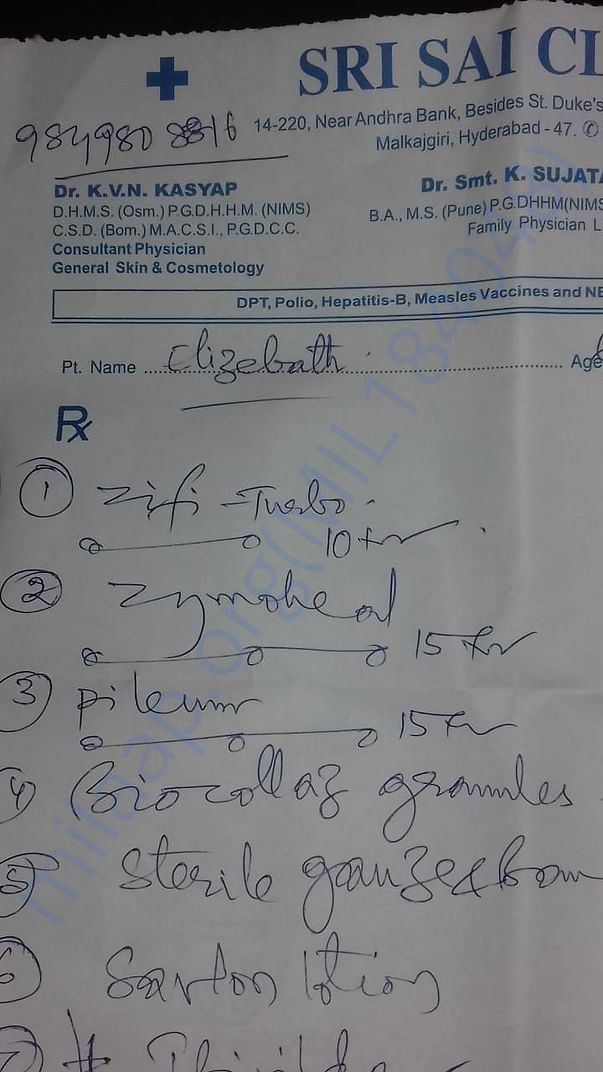 SRI SAI CL
9849808816
14-220, Near Andhra Bank, Besides St. Duke's
Malkajgiri, Hyderabad - 47. ✆
Dr. K.V.N. KASYAP
D.H.M.S. (Osm.) P.G.D.H.H.M. (NIMS)
C.S.D. (Bom.) M.A.C.S.I., P.G.D.C.C.
Consultant Physician
General Skin & Cosmetology
Dr. Smt. K. SUJATA
B.A., M.S. (Pune) P.G.DHHM(NIMS
Family Physician L
DPT, Polio, Hepatitis-B, Measles Vaccines and NE
Pt. Name Elizebath Age
Rx
1 Zifi-Turbo
10
2 Zymoheal
15
3 Pileum
15
4 Biocollaz granules
5 Sterile gauze
6 Savlon lotion
7
milaap.org(MIL184043)